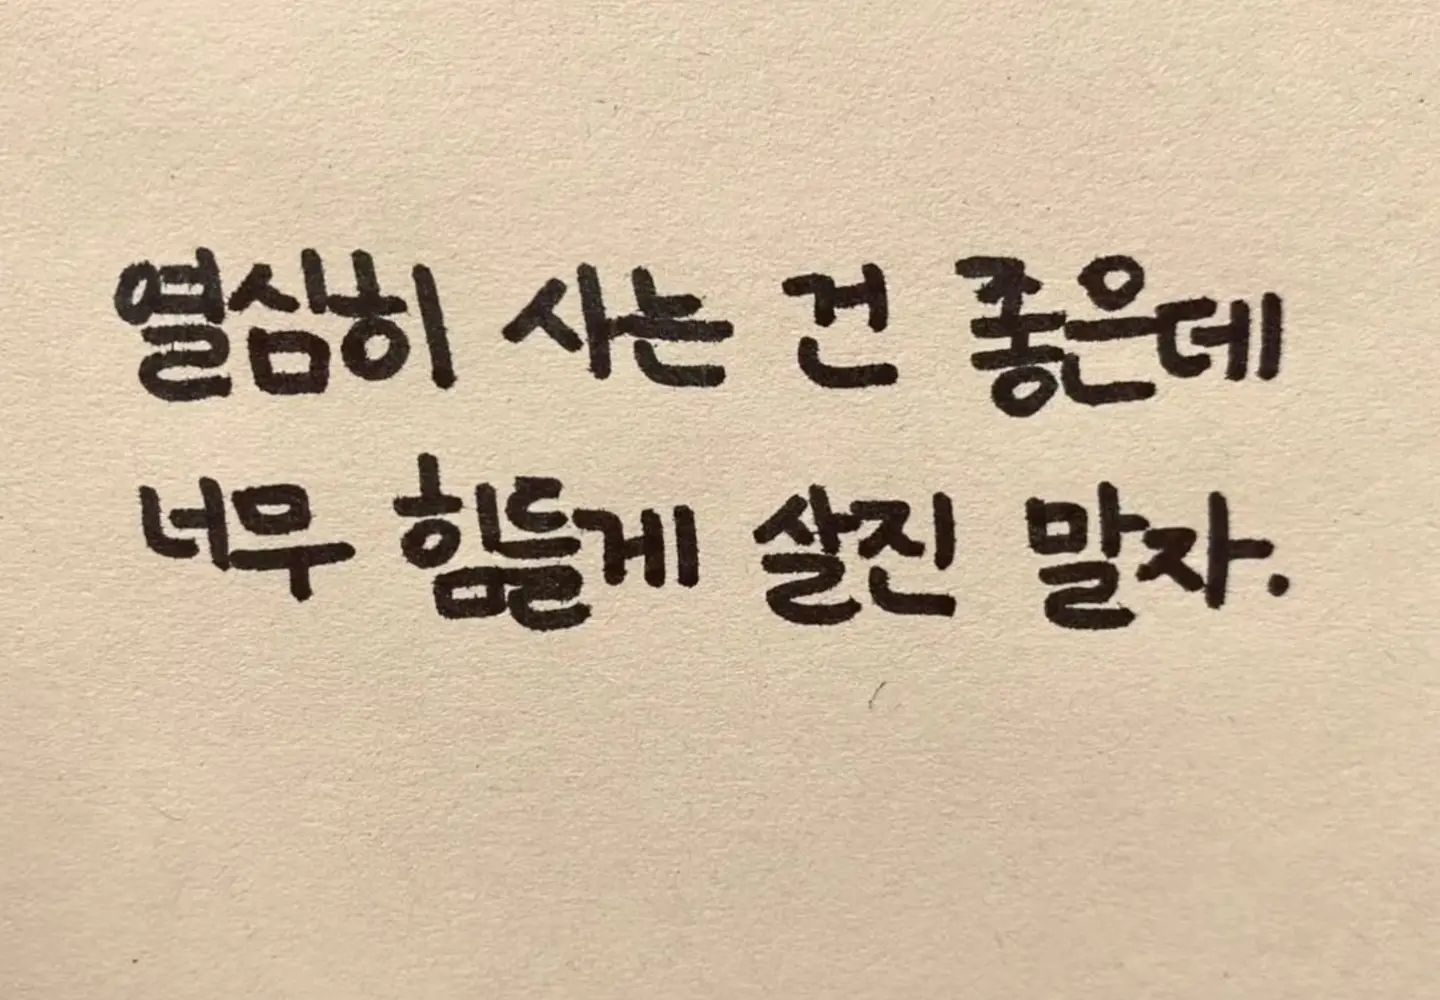 열심히 사는 건 좋은데
너무 힘들게 살진 말자.